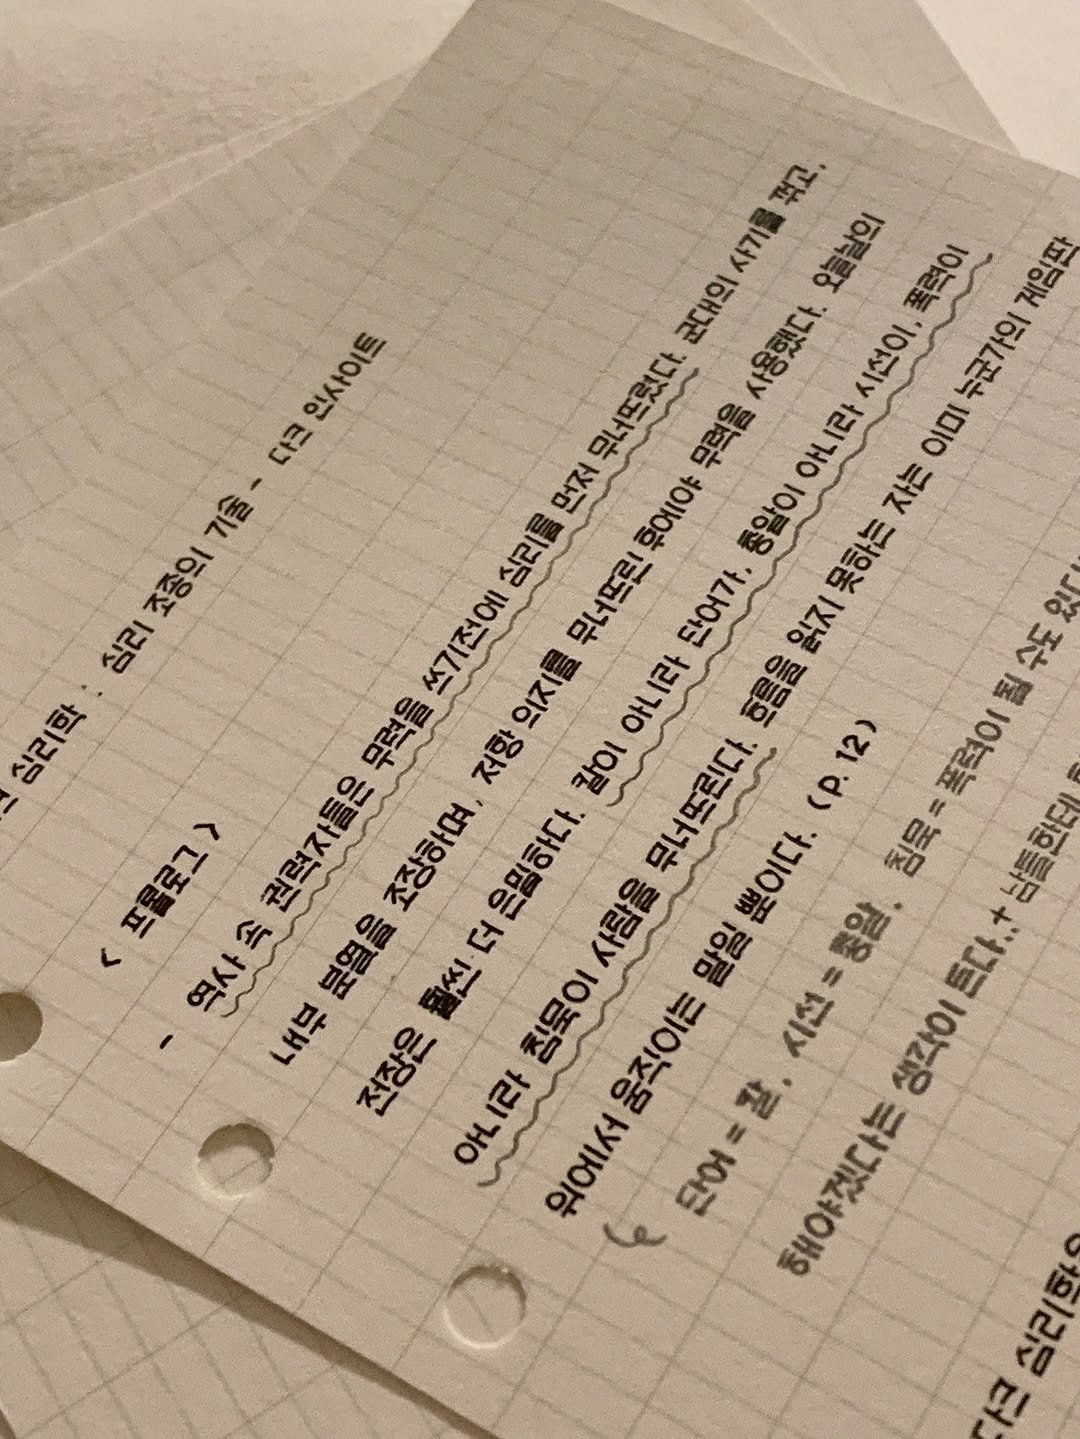 심리학 : 심리 조종의 기술 - 다크 인사이트
< 프롤로그 >
- 역사 속 권력자들은 무력을 쓰기전에 심리를 먼저 무너뜨렸다. 군대의 사기를 꺾고,
내부 분열을 조장하며, 저항 의지를 무너뜨린 후에야 무력을 사용했다. 오늘날의
전장은 훨씬 더 은밀하다. 칼이 아니라 단어가, 총알이 아니라 시선이, 폭력이
아니라 침묵이 사람을 무너뜨린다. 흐름을 읽지 못하는 자는 이미 누군가의 게임판
위에서 움직이는 말일 뿐이다. (p.12)
단어 = 칼, 시선 = 총알, 침묵 = 폭력이 될 수도 있다
해야겠다는 생각이 든다..+ 남들한테
심리학